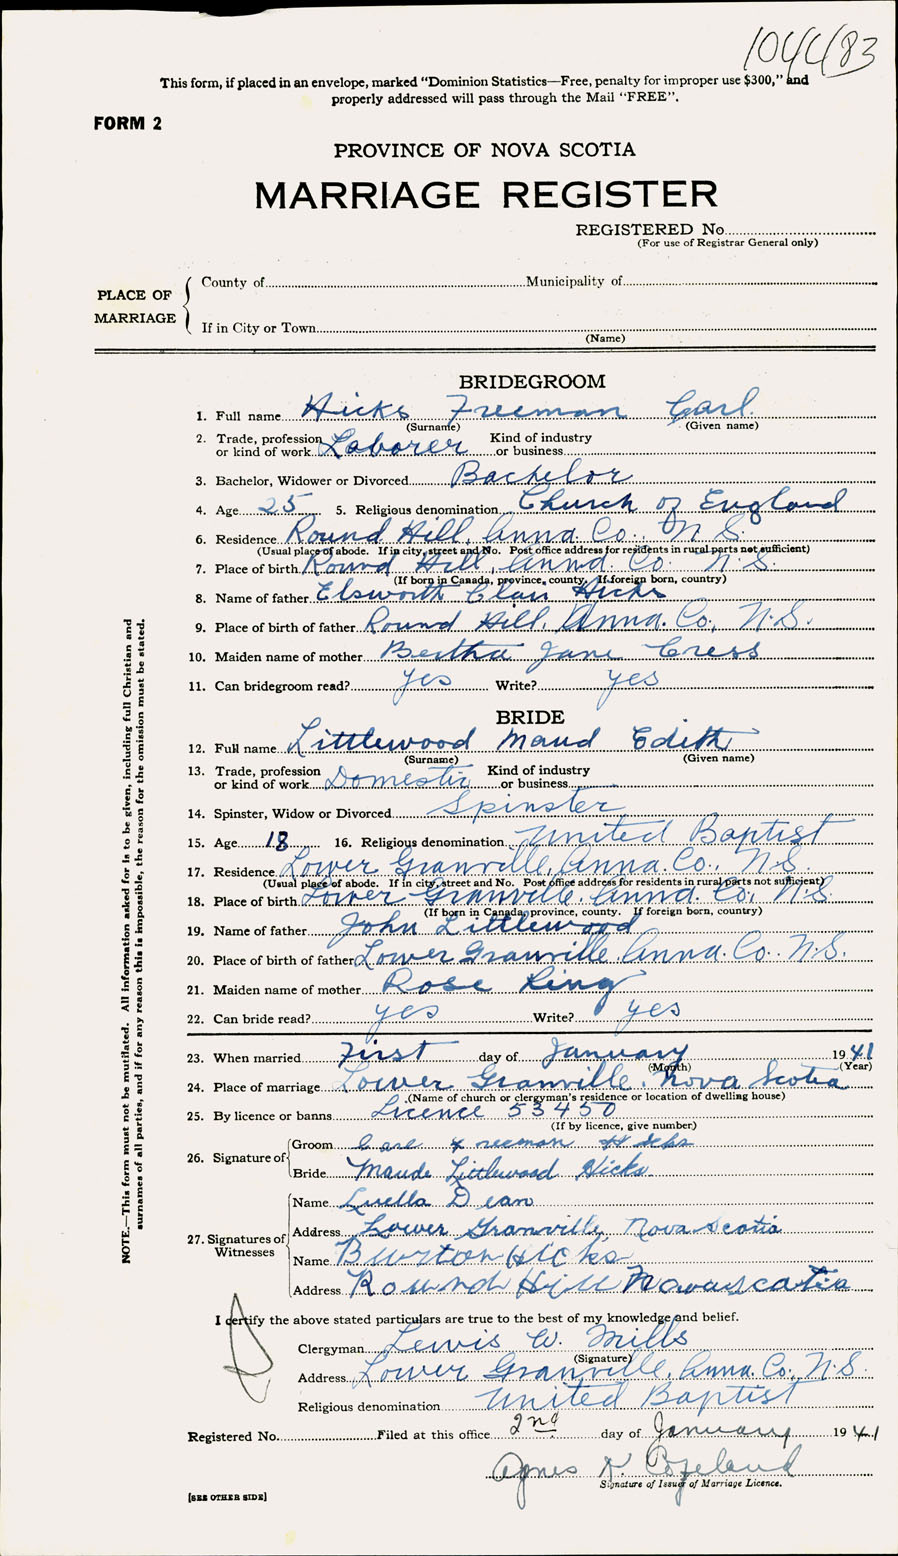 104483
This form, if placed in an envelope, marked "Dominion Statistics—Free, penalty for improper use $300," and
properly addressed will pass through the Mail "FREE".
FORM 2
PROVINCE OF NOVA SCOTIA
MARRIAGE REGISTER
REGISTERED No.
(For use of Registrar General only)
PLACE OF MARRIAGE
County of Municipality of
If in City or Town
(Name)
BRIDEGROOM
1. Full name Hicks Freeman Carl
(Surname) (Given name)
2. Trade, profession or kind of work Laborer Kind of industry or business
3. Bachelor, Widower or Divorced Bachelor
4. Age 25 5. Religious denomination Church of England
6. Residence Round Hill, Anna. Co., N.S.
(Usual place of abode. If in city, street and No. Post office address for residents in rural parts not sufficient)
7. Place of birth Round Hill, Anna. Co. N.S.
(If born in Canada, province, county. If foreign born, country)
8. Name of father Elsworth Clair Hicks
9. Place of birth of father Round Hill, Anna. Co., N.S.
10. Maiden name of mother Bertha Jane Cress
11. Can bridegroom read? yes Write? yes
BRIDE
12. Full name Littlewood Maud Edith
(Surname) (Given name)
13. Trade, profession or kind of work Domestic Kind of industry or business
14. Spinster, Widow or Divorced Spinster
15. Age 18 16. Religious denomination United Baptist
17. Residence Lower Granville, Anna. Co., N.S.
(Usual place of abode. If in city, street and No. Post office address for residents in rural parts not sufficient)
18. Place of birth Lower Granville, Anna. Co., N.S.
(If born in Canada, province, county. If foreign born, country)
19. Name of father John Littlewood
20. Place of birth of father Lower Granville, Anna. Co. N.S.
21. Maiden name of mother Rose Ring
22. Can bride read? yes Write? yes
23. When married First day of January 1941
(Month) (Year)
24. Place of marriage Lower Granville, Nova Scotia
(Name of church or clergyman's residence or location of dwelling house)
25. By licence or banns Licence 53450
(If by licence, give number)
26. Signature of
Groom Carl Freeman Hicks
Bride Maude Littlewood Hicks
27. Signatures of Witnesses
Name Luella Dean
Address Lower Granville, Nova Scotia
Name Burton Hicks
Address Round Hill Novascotia
I certify the above stated particulars are true to the best of my knowledge and belief.
Clergyman Lewis W. Mills
(Signature)
Address Lower Granville, Anna. Co., N.S.
Religious denomination United Baptist
Registered No. Filed at this office 2nd day of January 1941
Agnes K. Copeland
Signature of Issuer of Marriage Licence.
[SEE OTHER SIDE]
NOTE.—This form must not be mutilated. All information asked for is to be given, including full Christian and
surnames of all parties, and if for any reason this is impossible, the reason for the omission must be stated.